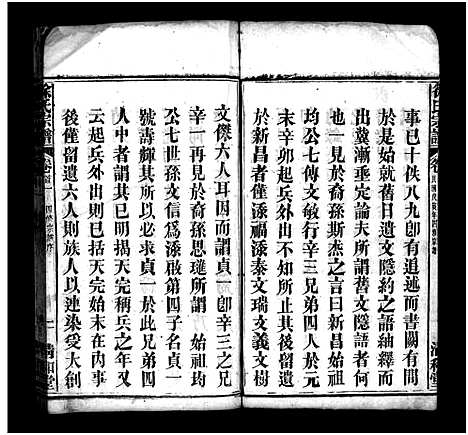 事已十佚八九卽有追述而書闕有間
於是始就舊日遺文隱約之語紬繹而
出冀漸垂定論夫所謂舊文隱語者何
也一見於裔孫斯杰之言曰新昌始祖
均公七傳文敏行辛三兄弟四人於元
末辛卯起兵外出不知所止其後留遺
於新昌者僅添啟添泰文瑞文義文樹
文傑六人耳因而謂貞一卽辛三之兄
辛一再見於裔孫思璡所謂 始祖均
公七世孫文信爲添啟第四子名貞一
號壽輝其所以必求貞一於兄弟四
人中者謂其已明揭天完稱兵之年又
云起兵外出則已括天完始末在內事
後僅留遺六人則族人以連染受大創
徐氏宗譜
卷首
清和堂
徐氏宗譜